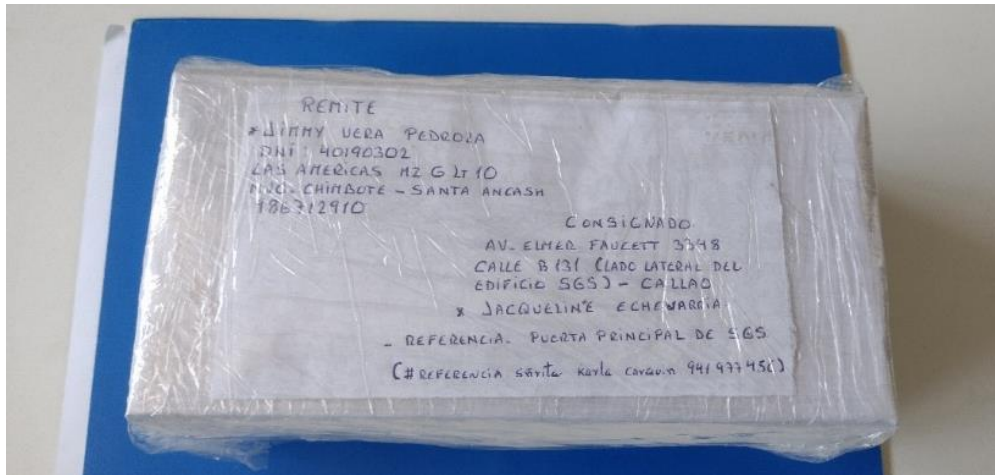 REMITE
* JIMMY VERA PEDROZA
DNI: 40190302
LAS AMERICAS MZ G LT 10
NVO. CHIMBOTE - SANTA ANCASH
986712910
CONSIGNADO
AV. ELMER FAUCETT 3348
CALLE B 131 (LADO LATERAL DEL
EDIFICIO SGS) - CALLAO
* JACQUELINE ECHEVARRIA
- REFERENCIA. PUERTA PRINCIPAL DE SGS
(# REFERENCIA Sñrita Karla 941977456)